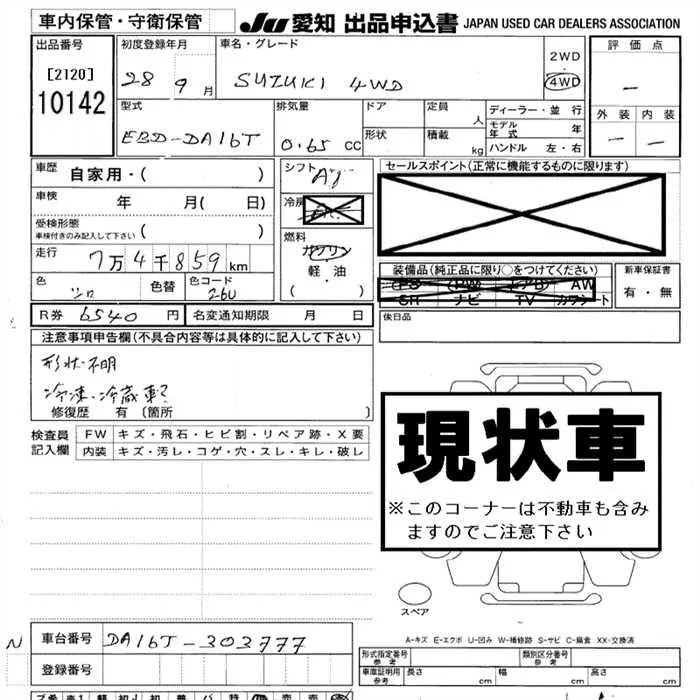 車内保管・守衛保管
JU 愛知 出品申込書 JAPAN USED CAR DEALERS ASSOCIATION
出品番号
[2120]
10142
初度登録年月
28 9 月
車名・グレード
SUZUKI 4WD
2WD
4WD
評価点
—
外装 内装
— —
型式
EBD-DA16T
排気量
0.65 CC
ドア
形状
定員
人
積載
kg
ディーラー・並行
モデル年式 年
ハンドル 左・右
車歴 自家用・( )
車検 年 月( 日)
受検形態
車検付きのみ記入して下さい ( )
走行 7万4千859km
色 シロ 色替 色コード 26U
シフト
冷房
燃料
ガソリン
軽・油
( )
セールスポイント(正常に機能するものに限ります)
装備品(純正品に限り○をつけてください)
PS PW エアB AW
SR ナビ TV カワシート
新車保証書
有・無
R券 6540 円 名変通知期限 月 日
後日品
注意事項申告欄(不具合内容等は具体的に記入して下さい)
形状不明
冷凍・冷蔵軽
修復歴 有(箇所 )
検査員記入欄
FW キズ・飛石・ヒビ割・リペア跡・X要
内装 キズ・汚レ・コゲ・穴・スレ・キレ・破レ
現状車
※このコーナーは不動車も含み
ますのでご注意下さい
スペア
A-キズ E-エクボ U-凹み W-補修跡 S-サビ C-腐食 XX-交換済
N
車台番号 DA16T-303777
登録番号
形式指定番号
参考
類別区分番号
参考
車庫証明用
参考
長さ cm 幅 cm 高さ cm